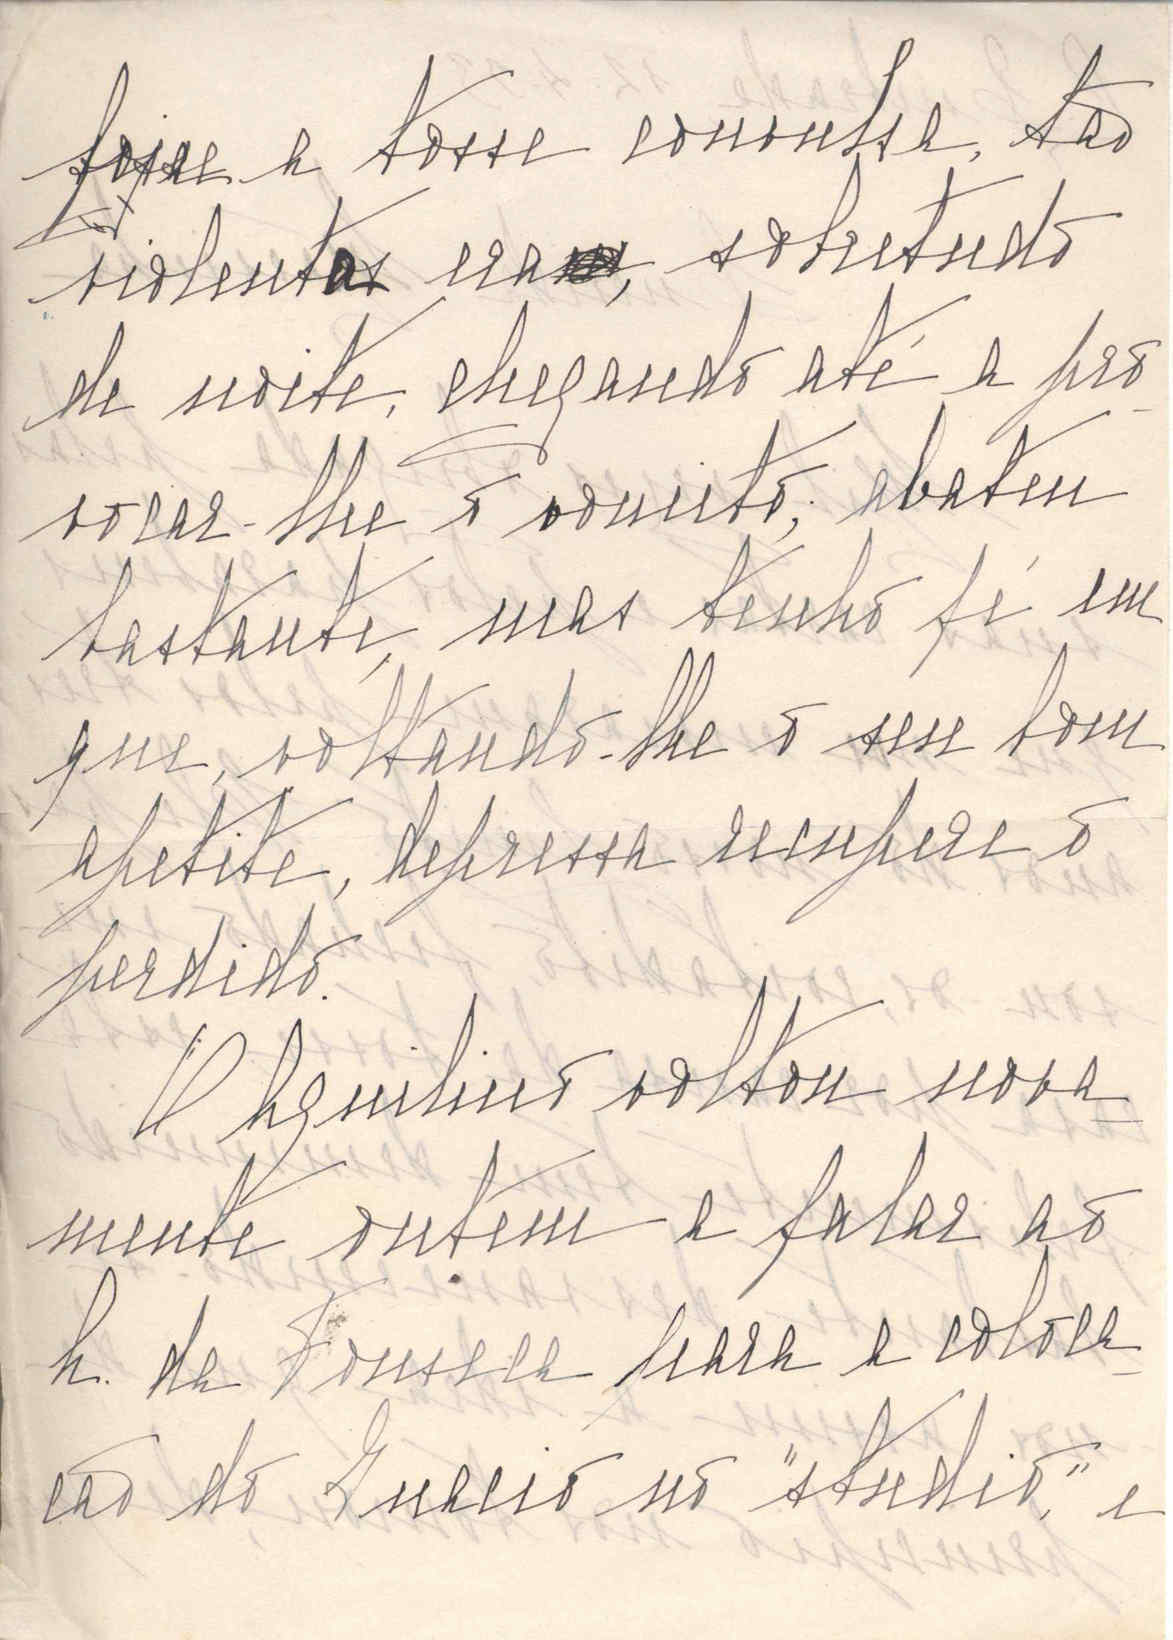 fosse a tosse convulsa, tão
violenta era, sobretudo
de noite, chegando até a pro-
vocar-lhe o vomito; abateu
bastante, mas tenho fé em
que, voltando-lhe o seu bom
apetite, depressa recupere o
perdido.
O Aquilino voltou nova-
mente ontem a falar ao
h. da Fonseca para a coloca-
cão do Inacio no "studio", e